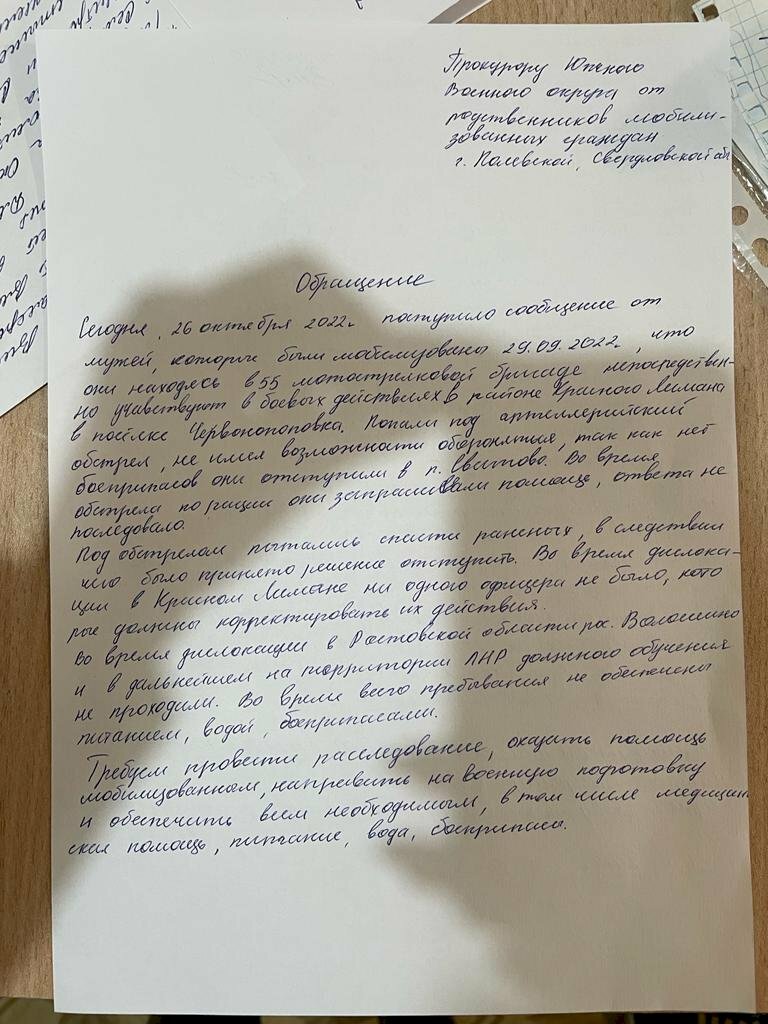 Прокурору Южного
Военного округа от
родственников мобили-
зованных граждан
г. Полевской, Свердловской обл
Обращение
Сегодня, 26 октября 2022г. поступило сообщение от
мужей, которые были мобилизованы 29.09.2022г., что
они находясь в 55 мотострелковой бригаде непосредствен-
но учавствуют в боевых действиях в районе Красного Лимана
в посёлке Червонопоповка. Попали под артеллерийский
обстрел, не имея возможности обороняться, так как нет
боеприпасов они отступили в п. Сватово. Во время
обстрела по рации они запрашивали помощь, ответа не
последовало.
Под обстрелом пытались спасти раненых, в следствии
чего было принято решение отступить. Во время дислока-
ции в Красном Лимане ни одного офицера не было, кото
рые должны корректировать их действия.
Во время дислокации в Ростовской области рс. Волошино
и в дальнейшем на территории ЛНР должного обучения
не проходили. Во время всего пребывания не обеспечены
питанием, водой, боеприпасами.
Требуем провести расследование, оказать помощь
мобилизованном, направить на военную подготовку
и обеспечить всем необходимым, в том числе медицин
ская помощь, питание, вода, боеприпасы.